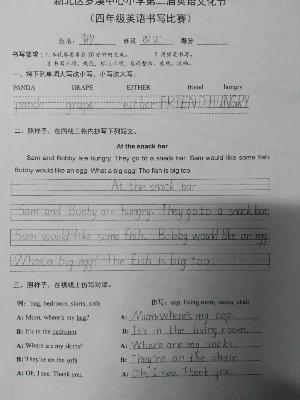 新北区罗溪中心小学第二届英语文化节
(四年级英语书写比赛)
姓名: 班级: 得分:
书写要求:
一、将下列单词大写改小写,小写改大写。
PANDA GRAPE EITHER friend hungry
panda grape either FRIEND HUNGRY
二、照样子,在四线三格内抄写下列短文。
At the snack bar
Sam and Bobby are hungry. They go to a snack bar. Sam would like some fish.
Bobby would like an egg. What a big egg! The fish is big too.
At the snack bar
Sam and Bobby are hungry. They go to a snack bar.
Sam would like some fish. Bobby would like an egg.
What a big egg! The fish is big too.
三、照样子,在横线上仿写对话。
例: bag, bedroom, skirts, sofa 仿写: cap, living room, socks, chair
A: Mum, where's my bag? A: Mum where's my cap.
B: It's in the bedroom B: It's in the living room.
A: Where are my skirts? A: Where are my socks.
B: They're on the sofa B: They're on the chair.
A: Oh, I see. Thank you. A: Oh, I see. Thank you.